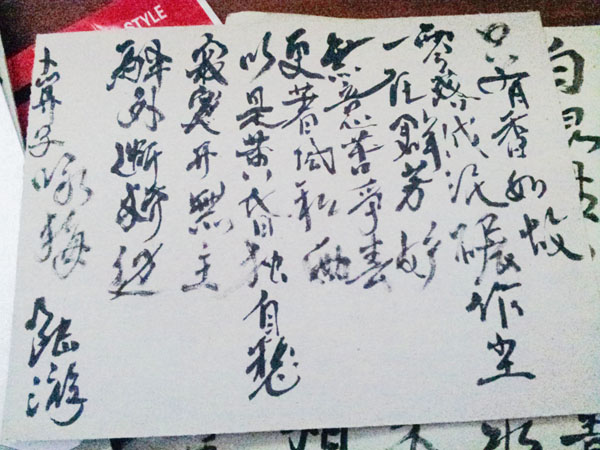 卜算子 咏梅 陸游
驛外断桥边
寂寞开無主
以是黄昏独自愁
更著风和雨
無意苦争春
一任群芳妒
零落成泥碾作尘
只有香如故
STYLE